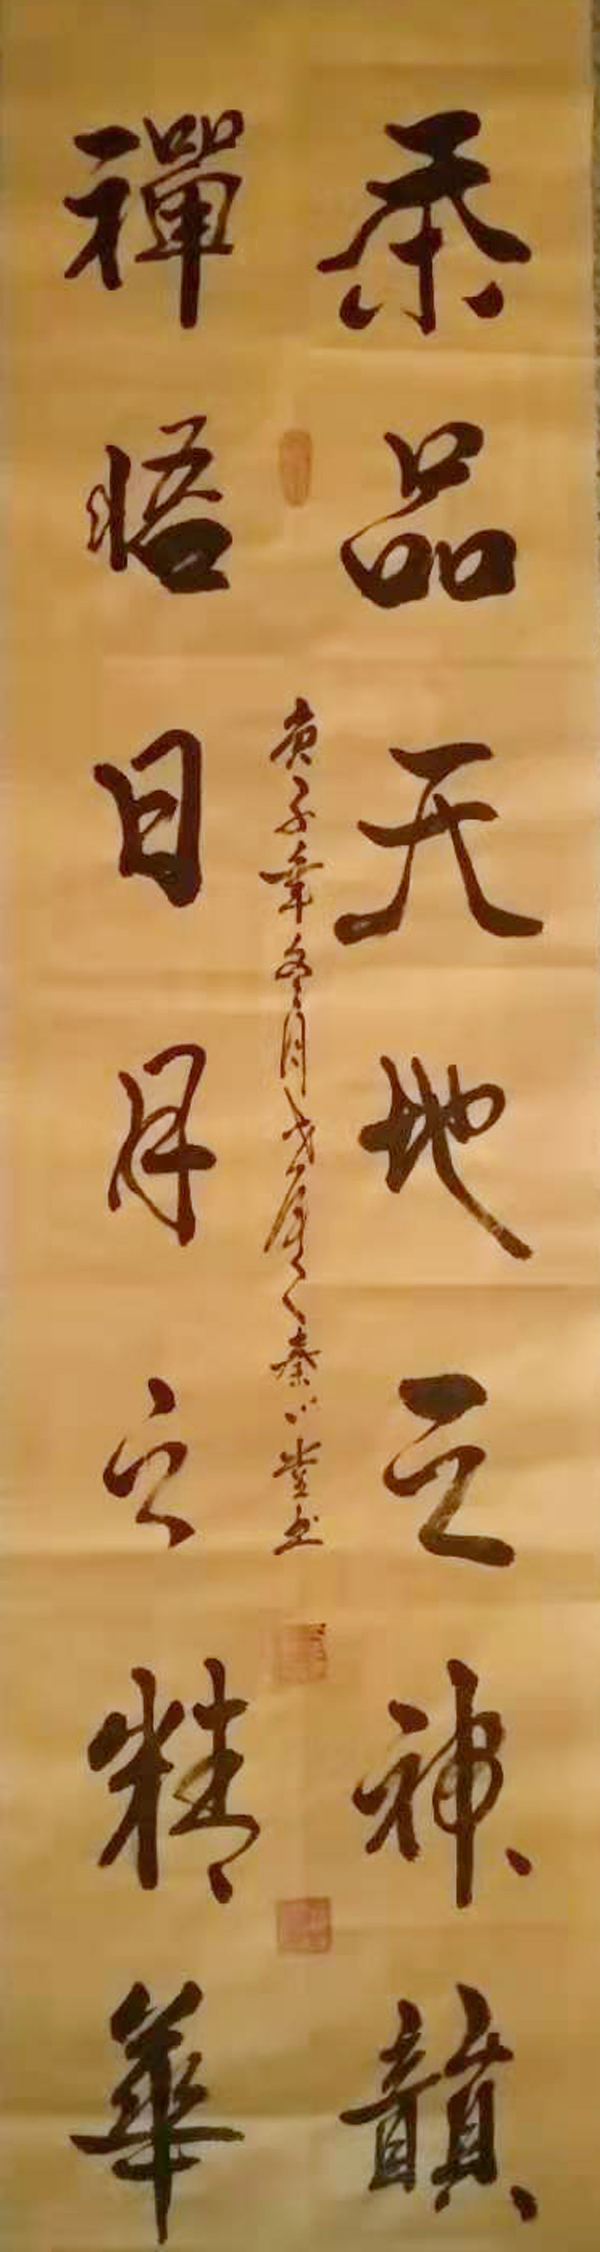 茶品天地之神韻
禪悟日月之精華
庚子年冬月 秦川堂書